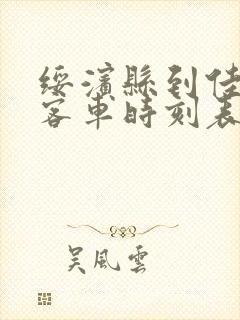 綏濱縣到佳
客車時刻表
吴風雲